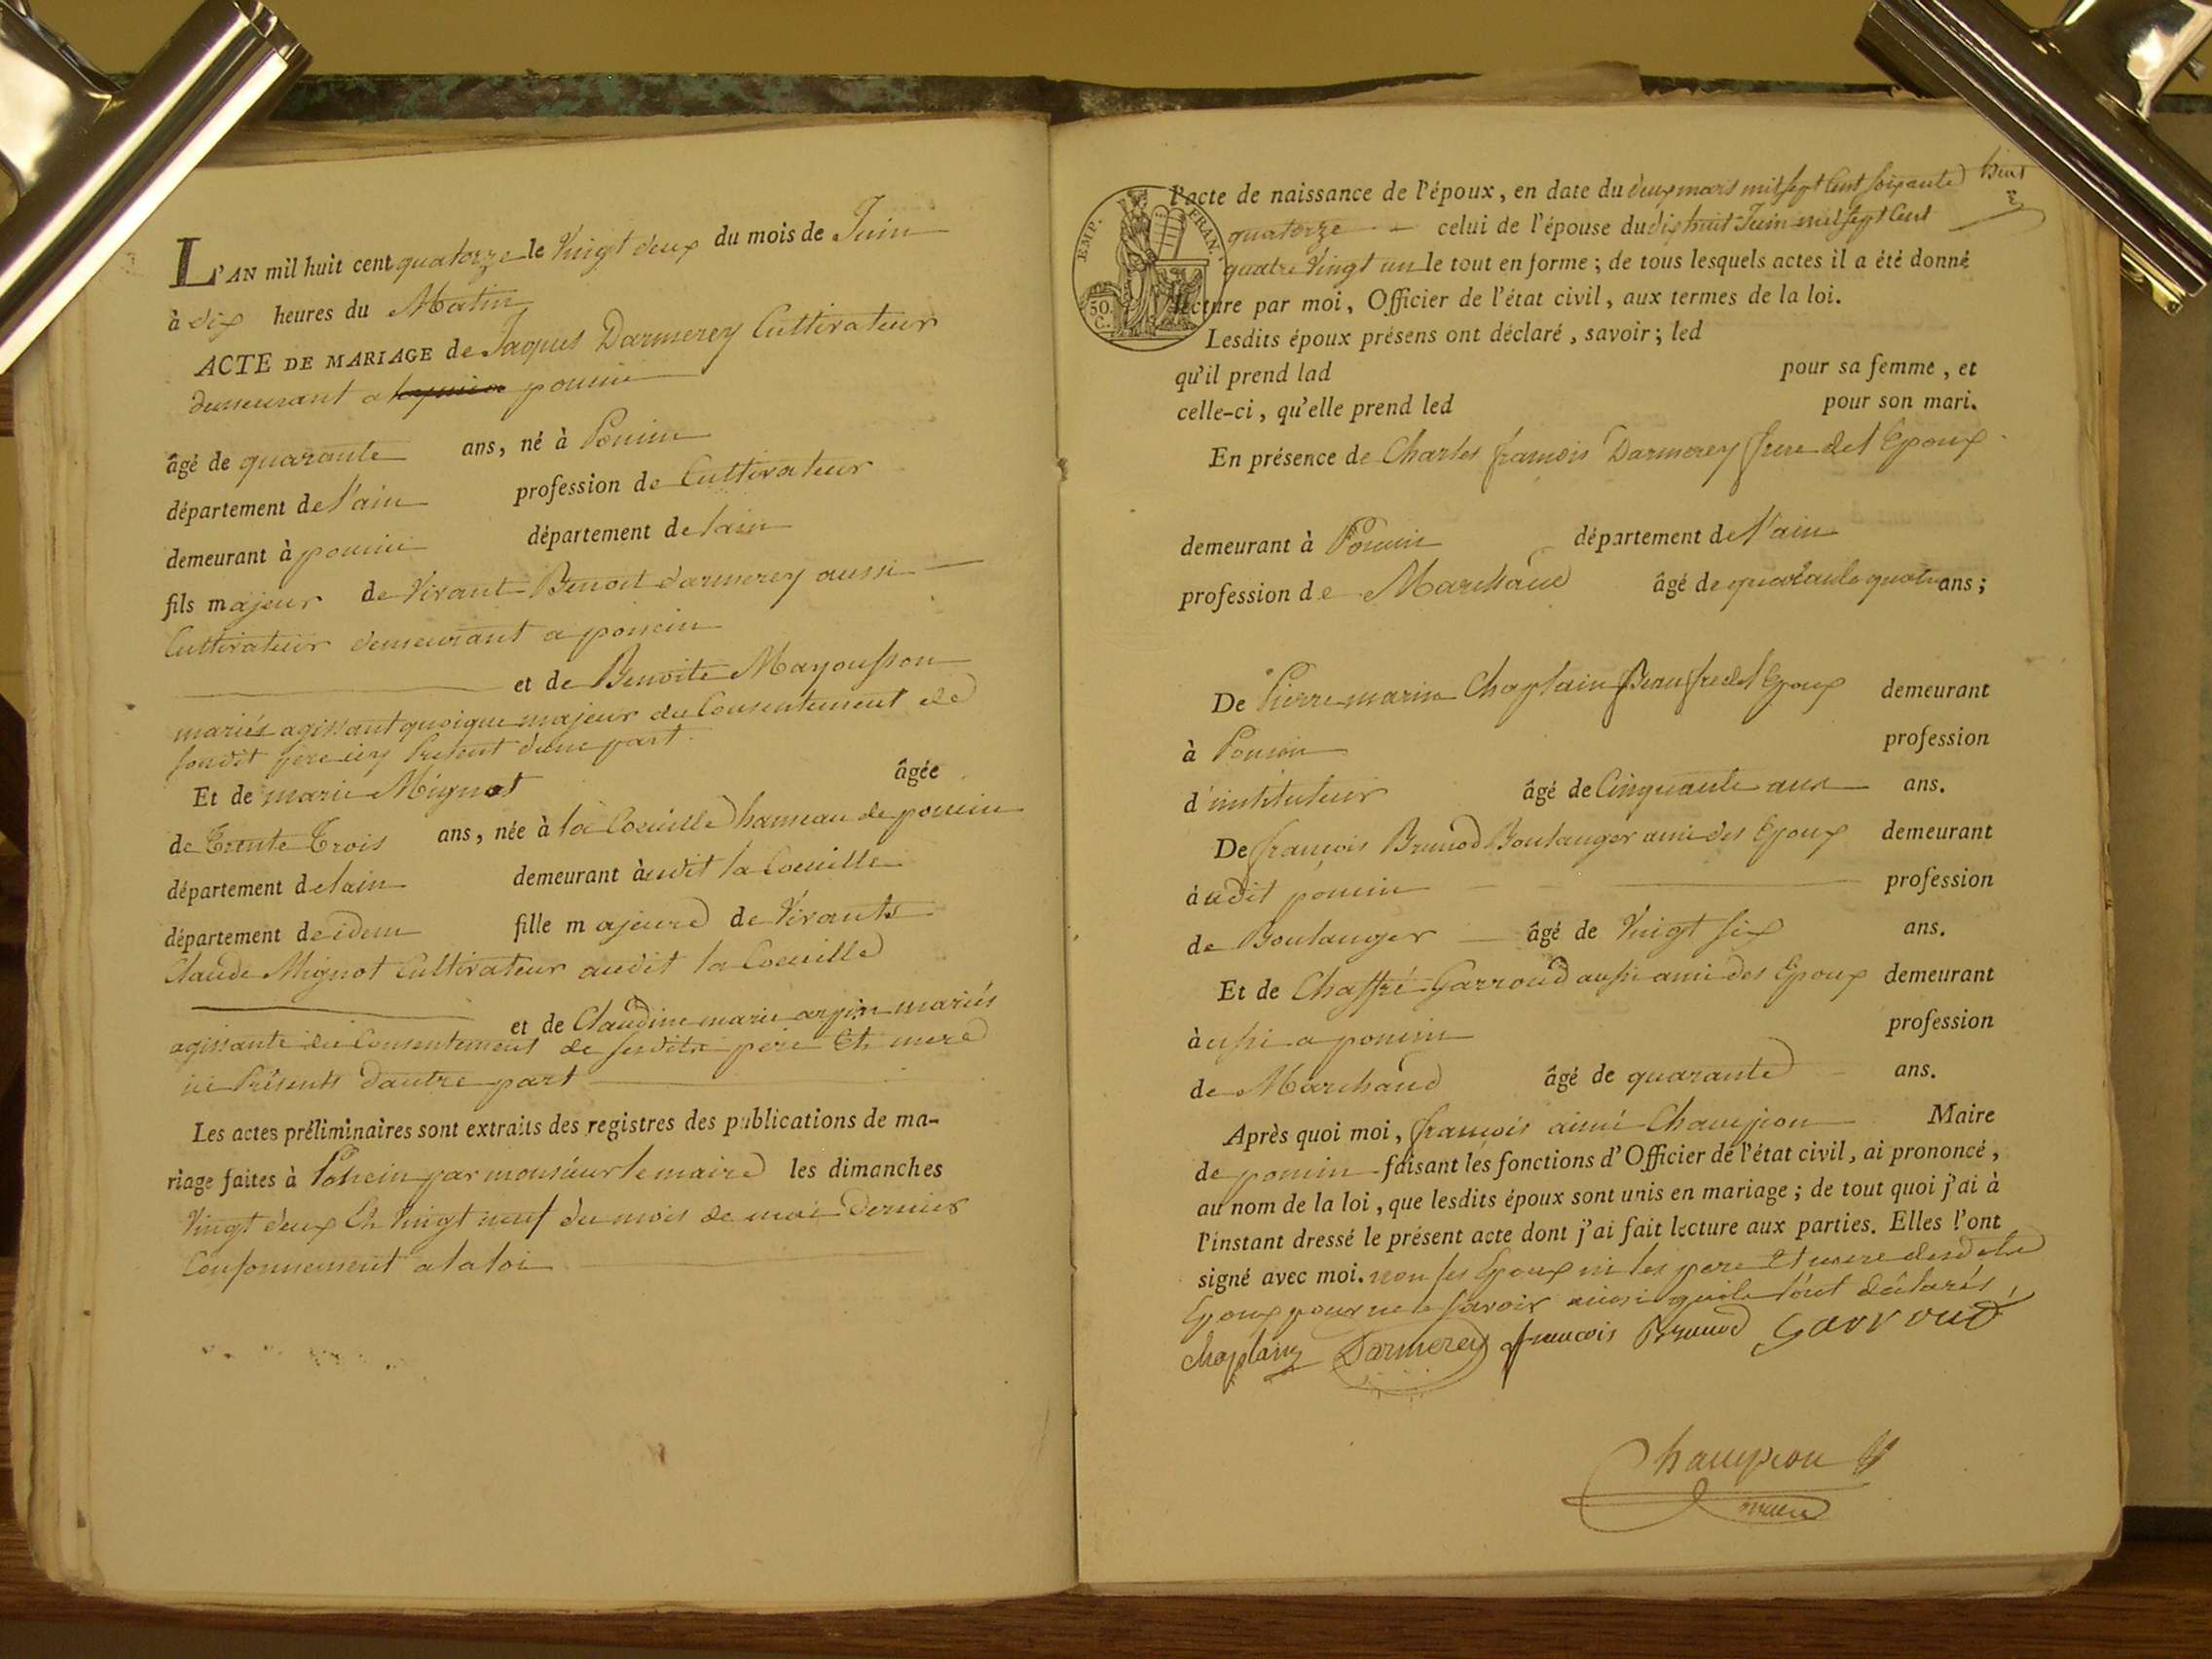 L'AN mil huit cent quatorze le Vingt deux du mois de Juin
à dix heures du Matin
ACTE DE MARIAGE de Jaques Darmerey Cultivateur
demeurant a poncin
âgé de quarante ans, né à Poncin
département de l'ain profession de Cultivateur
demeurant à poncin département de lain
fils majeur de Vivant Benoit darmerey aussi
Cultivateur demeurant a poncin
et de Benoite Mayousson
mariés agissant quoique majeur du Consentement de
sondit pere icy Present d'une part.
Et de marie Mignot âgée
de Trente Trois ans, née à la Coeuille hameau de poncin
département de lain demeurant àudit la Coeuille
département de idem fille majeure de Vivants
Claude Mignot Cultivateur audit la Coeuille
et de Claudine marie arpin mariés
agissante du Consentement de sesdits pere Et mere
ici Présents dautre part
Les actes préliminaires sont extraits des registres des publications de ma-
riage faites à Poncin par monsieur le maire les dimanches
Vingt deux Et Vingt neuf du mois de mai Dernier
Conformement a la loi
EMP. FRAN.
50 C.
l'acte de naissance de l'époux, en date du deux mars mil sept Cent soixante
quatorze celui de l'épouse du dix huit Juin mil sept Cent
quatre Vingt un le tout en forme; de tous lesquels actes il a été donné
lecture par moi, Officier de l'état civil, aux termes de la loi.
Lesdits époux présens ont déclaré, savoir; led
qu'il prend lad pour sa femme, et
celle-ci, qu'elle prend led pour son mari.
En présence de Charles francois Darmerey frere de l'Epoux
demeurant à Poncin département de l'ain
profession de Marchand âgé de quarante quatre ans;
De Pierre marin Chaplain Beaufrere de l'Epoux demeurant
à Poncin profession
d'instituteur âgé de Cinquante ans ans.
De francois Brunod Boulanger ami des Epoux demeurant
àudit poncin profession
de Boulanger âgé de Vingt six ans.
Et de Chaffré Garroud aussi ami des Epoux demeurant
àussi a poncin profession
de Marchand âgé de quarante ans.
Après quoi moi, francois aimé Champion Maire
de poncin faisant les fonctions d'Officier de l'état civil, ai prononcé,
au nom de la loi, que lesdits époux sont unis en mariage; de tout quoi j'ai à
l'instant dressé le présent acte dont j'ai fait lecture aux parties. Elles l'ont
signé avec moi. non les Epoux ni les pere Et mere desdits
Epoux pour ne le savoir ainsi quils l'ont déclarés
Chaplain Darmerey francois Brunod Garroud
Champion
maire